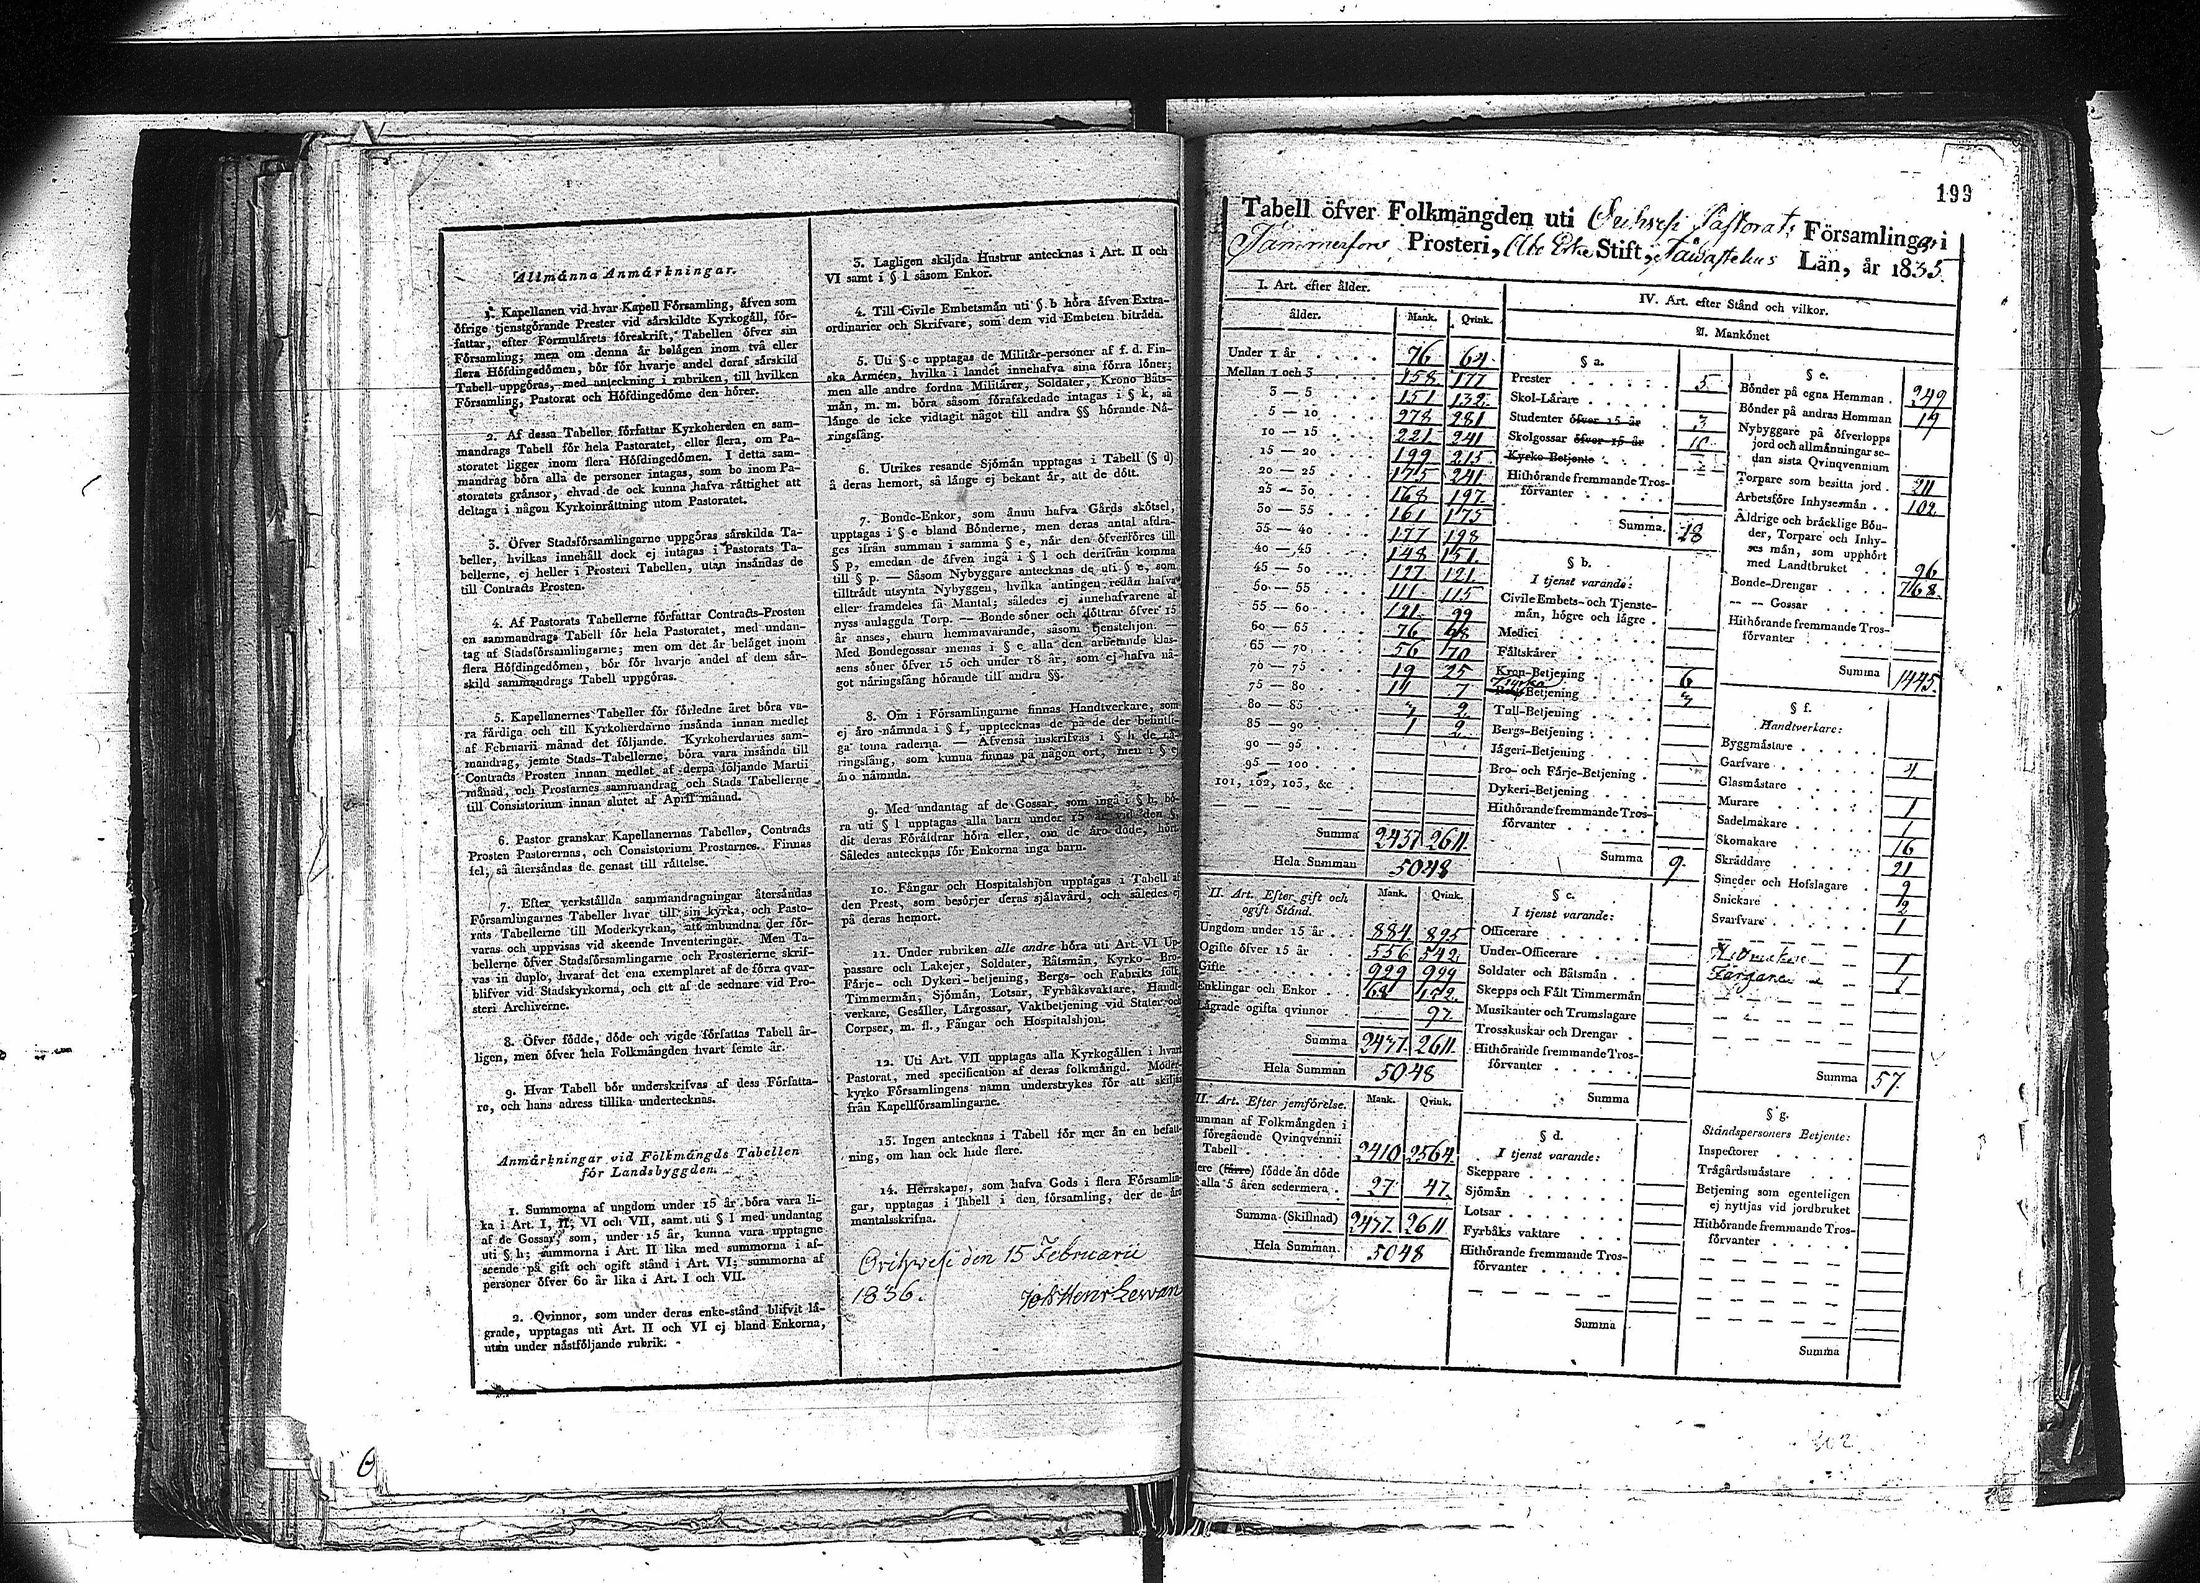 Allmänna Anmärkningar.
1. Kapellanen vid hvar Kapell Församling, äfven som
öfrige tjenstgörande Prester vid särskildte Kyrkogäll, för-
fattar, efter Formulärets föreskrift, Tabellen öfver sin
Församling; men om denna är belägen inom två eller
flera Höfdingedömen, bör för hvarje andel deraf särskild
Tabell uppgöras, med anteckning i rubriken, till hvilken
Församling, Pastorat och Höfdingedöme den hörer.
2. Af dessa Tabeller författar Kyrkoherden en sam-
mandrags Tabell för hela Pastoratet, eller flera, om Pa-
storatet ligger inom flera Höfdingedömen. I detta sam-
mandrag böra alla de personer intagas, som bo inom Pa-
storatets gränsor, ehvad de ock kunna hafva rättighet att
deltaga i någon Kyrkoinrättning utom Pastoratet.
3. Öfver Stadsförsamlingarne uppgöras särskilda Ta-
beller, hvilkas innehåll dock ej intagas i Pastorats Ta-
bellerne, ej heller i Prosteri Tabellen, utan insändas de
till Contracts Prosten.
4. Af Pastorats Tabellerne författar Contracts-Prosten
en sammandrags Tabell för hela Pastoratet, med undan-
tag af Stadsförsamlingarne; men om det är beläget inom
flera Höfdingedömen, bör för hvarje andel af dem sär-
skild sammandrags Tabell uppgöras.
5. Kapellanernes Tabeller för förledne året böra va-
ra färdiga och till Kyrkoherdarne insända innan medlet
af Februarii månad det följande. Kyrkoherdarnes sam-
mandrag, jemte Stads-Tabellerne, böra vara insända till
Contracts Prosten innan medlet af derpå följande Martii
månad, och Prostarnes sammandrag och Stads Tabellerne
till Consistorium innan slutet af April månad.
6. Pastor granskar Kapellanernas Tabeller, Contracts
Prosten Pastorernas, och Consistorium Prostarnes. Finnas
fel, så återsändas de genast till rättelse.
7. Efter verkställda sammandragningar återsändas
Församlingarnes Tabeller hvar till sin kyrka, och Pasto-
rats Tabellerne till Moderkyrkan, att inbundna der för-
varas och uppvisas vid skeende Inventeringar. Men Ta-
bellerne öfver Stadsförsamlingarne och Prosterierne skrif-
vas in duplo, hvaraf det ena exemplaret af de förra qvar-
blifver vid Stadskyrkorna, och ett af de sednare vid Pro-
steri Archiverne.
8. Öfver födde, döde och vigde författas Tabell år-
ligen, men öfver hela Folkmängden hvart femte år.
9. Hvar Tabell bör underskrifvas af dess Författa-
re, och hans adress tillika undertecknas.
Anmärkningar vid Folkmängds Tabellen
för Landsbyggden.
1. Summorna af ungdom under 15 år böra vara li-
ka i Art. I, II, VI och VII, samt uti § l med undantag
af de Gossar, som, under 15 år, kunna vara upptagne
uti § h; summorna i Art. II lika med summorna i af-
seende på gift och ogift stånd i Art. VI; summorna af
personer öfver 60 år lika i Art. I och VII.
2. Qvinnor, som under deras enke-stånd blifvit lä-
grade, upptagas uti Art. II och VI ej bland Enkorna,
utan under nästföljande rubrik.
3. Lagligen skiljda Hustrur antecknas i Art. II och
VI samt i § l såsom Enkor.
4. Till Civile Embetsmän uti § b höra äfven Extra-
ordinarier och Skrifvare, som dem vid Embeten biträda.
5. Uti § c upptagas de Militär-personer af f. d. Fin-
ska Arméen, hvilka i landet innehafva sina förra löner;
men alle andre fordna Militärer, Soldater, Krono Båts-
män, m. m. böra såsom förafskedade intagas i § k, så
länge de icke vidtagit något till andra §§ hörande Nä-
ringsfång.
6. Utrikes resande Sjömän upptagas i Tabell (§ d)
å deras hemort, så länge ej bekant är, att de dött.
7. Bonde-Enkor, som ännu hafva Gårds skötsel,
upptagas i § e bland Bönderne, men deras antal afdra-
ges ifrån summan i samma § e, när den öfverföres till
§ p, emedan de äfven ingå i § l och derifrån komma
till § p. — Såsom Nybyggare antecknas de uti § e, som
tillträdt utsynta Nybyggen, hvilka antingen redan hafva
eller framdeles få Mantal; således ej innehafvarene af
nyss anlaggda Torp. — Bonde söner och döttrar öfver 15
år anses, ehuru hemmavarande, såsom tjenstehjon. —
Med Bondegossar menas i § e alla den arbetande klas-
sens söner öfver 15 och under 18 år, som ej hafva nå-
got näringsfång hörande till andra §§.
8. Om i Församlingarne finnas Handtverkare, som
ej äro nämnda i § f, upptecknas de på de der befintli-
ga toma raderna. — Äfvenså inskrifvas i § h de nä-
ringsfång, som kunna finnas på någon ort, men i § ej
äro nämnda.
9. Med undantag af de Gossar, som ingå i § h, bö-
ra uti § l upptagas alla barn under 15 år vid den §,
dit deras Föräldrar höra eller, om de äro döde, hört.
Således antecknas för Enkorna inga barn.
10. Fångar och Hospitalshjon upptagas i Tabell af
den Prest, som besörjer deras själavård, och således ej
på deras hemort.
11. Under rubriken alle andre höra uti Art. VI Up-
passare och Lakejer, Soldater, Båtsmän, Kyrko- Bro-
Färje- och Dykeri-betjening, Bergs- och Fabriks folk,
Timmermän, Sjömän, Lotsar, Fyrbåksvaktare, Handt-
verkare, Gesäller, Lärgossar, Vaktbetjening vid Stater och
Corpser, m. fl., Fångar och Hospitalshjon.
12. Uti Art. VII upptagas alla Kyrkogällen i hvart
Pastorat, med specification af deras folkmängd. Moder-
kyrko Församlingens namn understrykes för att skiljas
från Kapellförsamlingarne.
13. Ingen antecknas i Tabell för mer än en befatt-
ning, om han ock hade flere.
14. Herrskaper, som hafva Gods i flera Församlin-
gar, upptagas i Tabell i den församling, der de äro
mantalsskrifna.
Orihwesi den 15 Februarii
1836.
199
Tabell öfver Folkmängden uti Orihvesi Pastorats Församlingar i
Tammerfors Prosteri, Åbo Erke Stift, Tavastehus Län, år 1835.
I. Art. efter ålder.
ålder. Mank. Qvink.
Under 1 år 76 64
Mellan 1 och 3 158 177
3 — 5 151 132
5 — 10 278 281
10 — 15 221 241
15 — 20 199 215
20 — 25 175 241
25 — 30 168 197
30 — 35 161 175
35 — 40 177 198
40 — 45 148 151
45 — 50 127 121
50 — 55 111 115
55 — 60 121 99
60 — 65 76 68
65 — 70 56 70
70 — 75 19 25
75 — 80 11 7
80 — 85 3 2
85 — 90 1 2
90 — 95
95 — 100
101, 102, 103, &c.
Summa 2437 2611
Hela Summan 5048
II. Art. Efter gift och Mank. Qvink.
ogift Stånd.
Ungdom under 15 år 884 895
Ogifte öfver 15 år 556 542
Gifte 929 929
Enklingar och Enkor 68 152
Lägrade ogifta qvinnor 97
Summa 2437 2611
Hela Summan 5048
II. Art. Efter jemförelse. Mank. Qvink.
umman af Folkmängden i
föregående Qvinqvennii
Tabell 2410 2564
lere (färre) födde än döde
alla 5 åren sedermera 27 47
Summa (Skillnad) 2437 2611
Hela Summan 5048
IV. Art. efter Stånd och vilkor.
A. Mankönet
§ a.
Prester 5
Skol-Lärare
Studenter öfver 15 år 3
Skolgossar öfver 15 år 10
Kyrko Betjente
Hithörande fremmande Tros-
förvanter
Summa 18
§ b.
I tjenst varande:
Civile Embets- och Tjenste-
män, högre och lägre
Medici
Fältskärer
Kron-Betjening 6
Kyrko Betjening 3
Tull-Betjening
Bergs-Betjening
Jägeri-Betjening
Bro- och Färje-Betjening
Dykeri-Betjening
Hithörande fremmande Tros-
förvanter
Summa 9
§ c.
I tjenst varande:
Officerare
Under-Officerare
Soldater och Båtsmän
Skepps och Fält Timmermän
Musikanter och Trumslagare
Trosskuskar och Drengar
Hithörande fremmande Tros-
förvanter
Summa
§ d.
I tjenst varande:
Skeppare
Sjömän
Lotsar
Fyrbåks vaktare
Hithörande fremmande Tros-
förvanter
Summa
§ e.
Bönder på egna Hemman 249
Bönder på andras Hemman 19
Nybyggare på öfverlopps
jord och allmänningar se-
dan sista Qvinqvennium
Torpare som besitta jord 211
Arbetsföre Inhysesmän 102
Äldrige och bräcklige Bön-
der, Torpare och Inhy-
ses män, som upphört
med Landtbruket 96
Bonde-Drengar 768
— — Gossar
Hithörande fremmande Tros-
förvanter
Summa 1445
§ f.
Handtverkare:
Byggmästare
Garfvare 4
Glasmästare
Murare 1
Sadelmakare 1
Skomakare 16
Skräddare 21
Smeder och Hofslagare 9
Snickare 2
Svarfvare 1
Färgare 1
Summa 57
§ g.
Ståndspersoners Betjente:
Inspector
Trägårdsmästare
Betjening som egenteligen
ej nyttjas vid jordbruket
Hithörande fremmande Tros-
förvanter
Summa